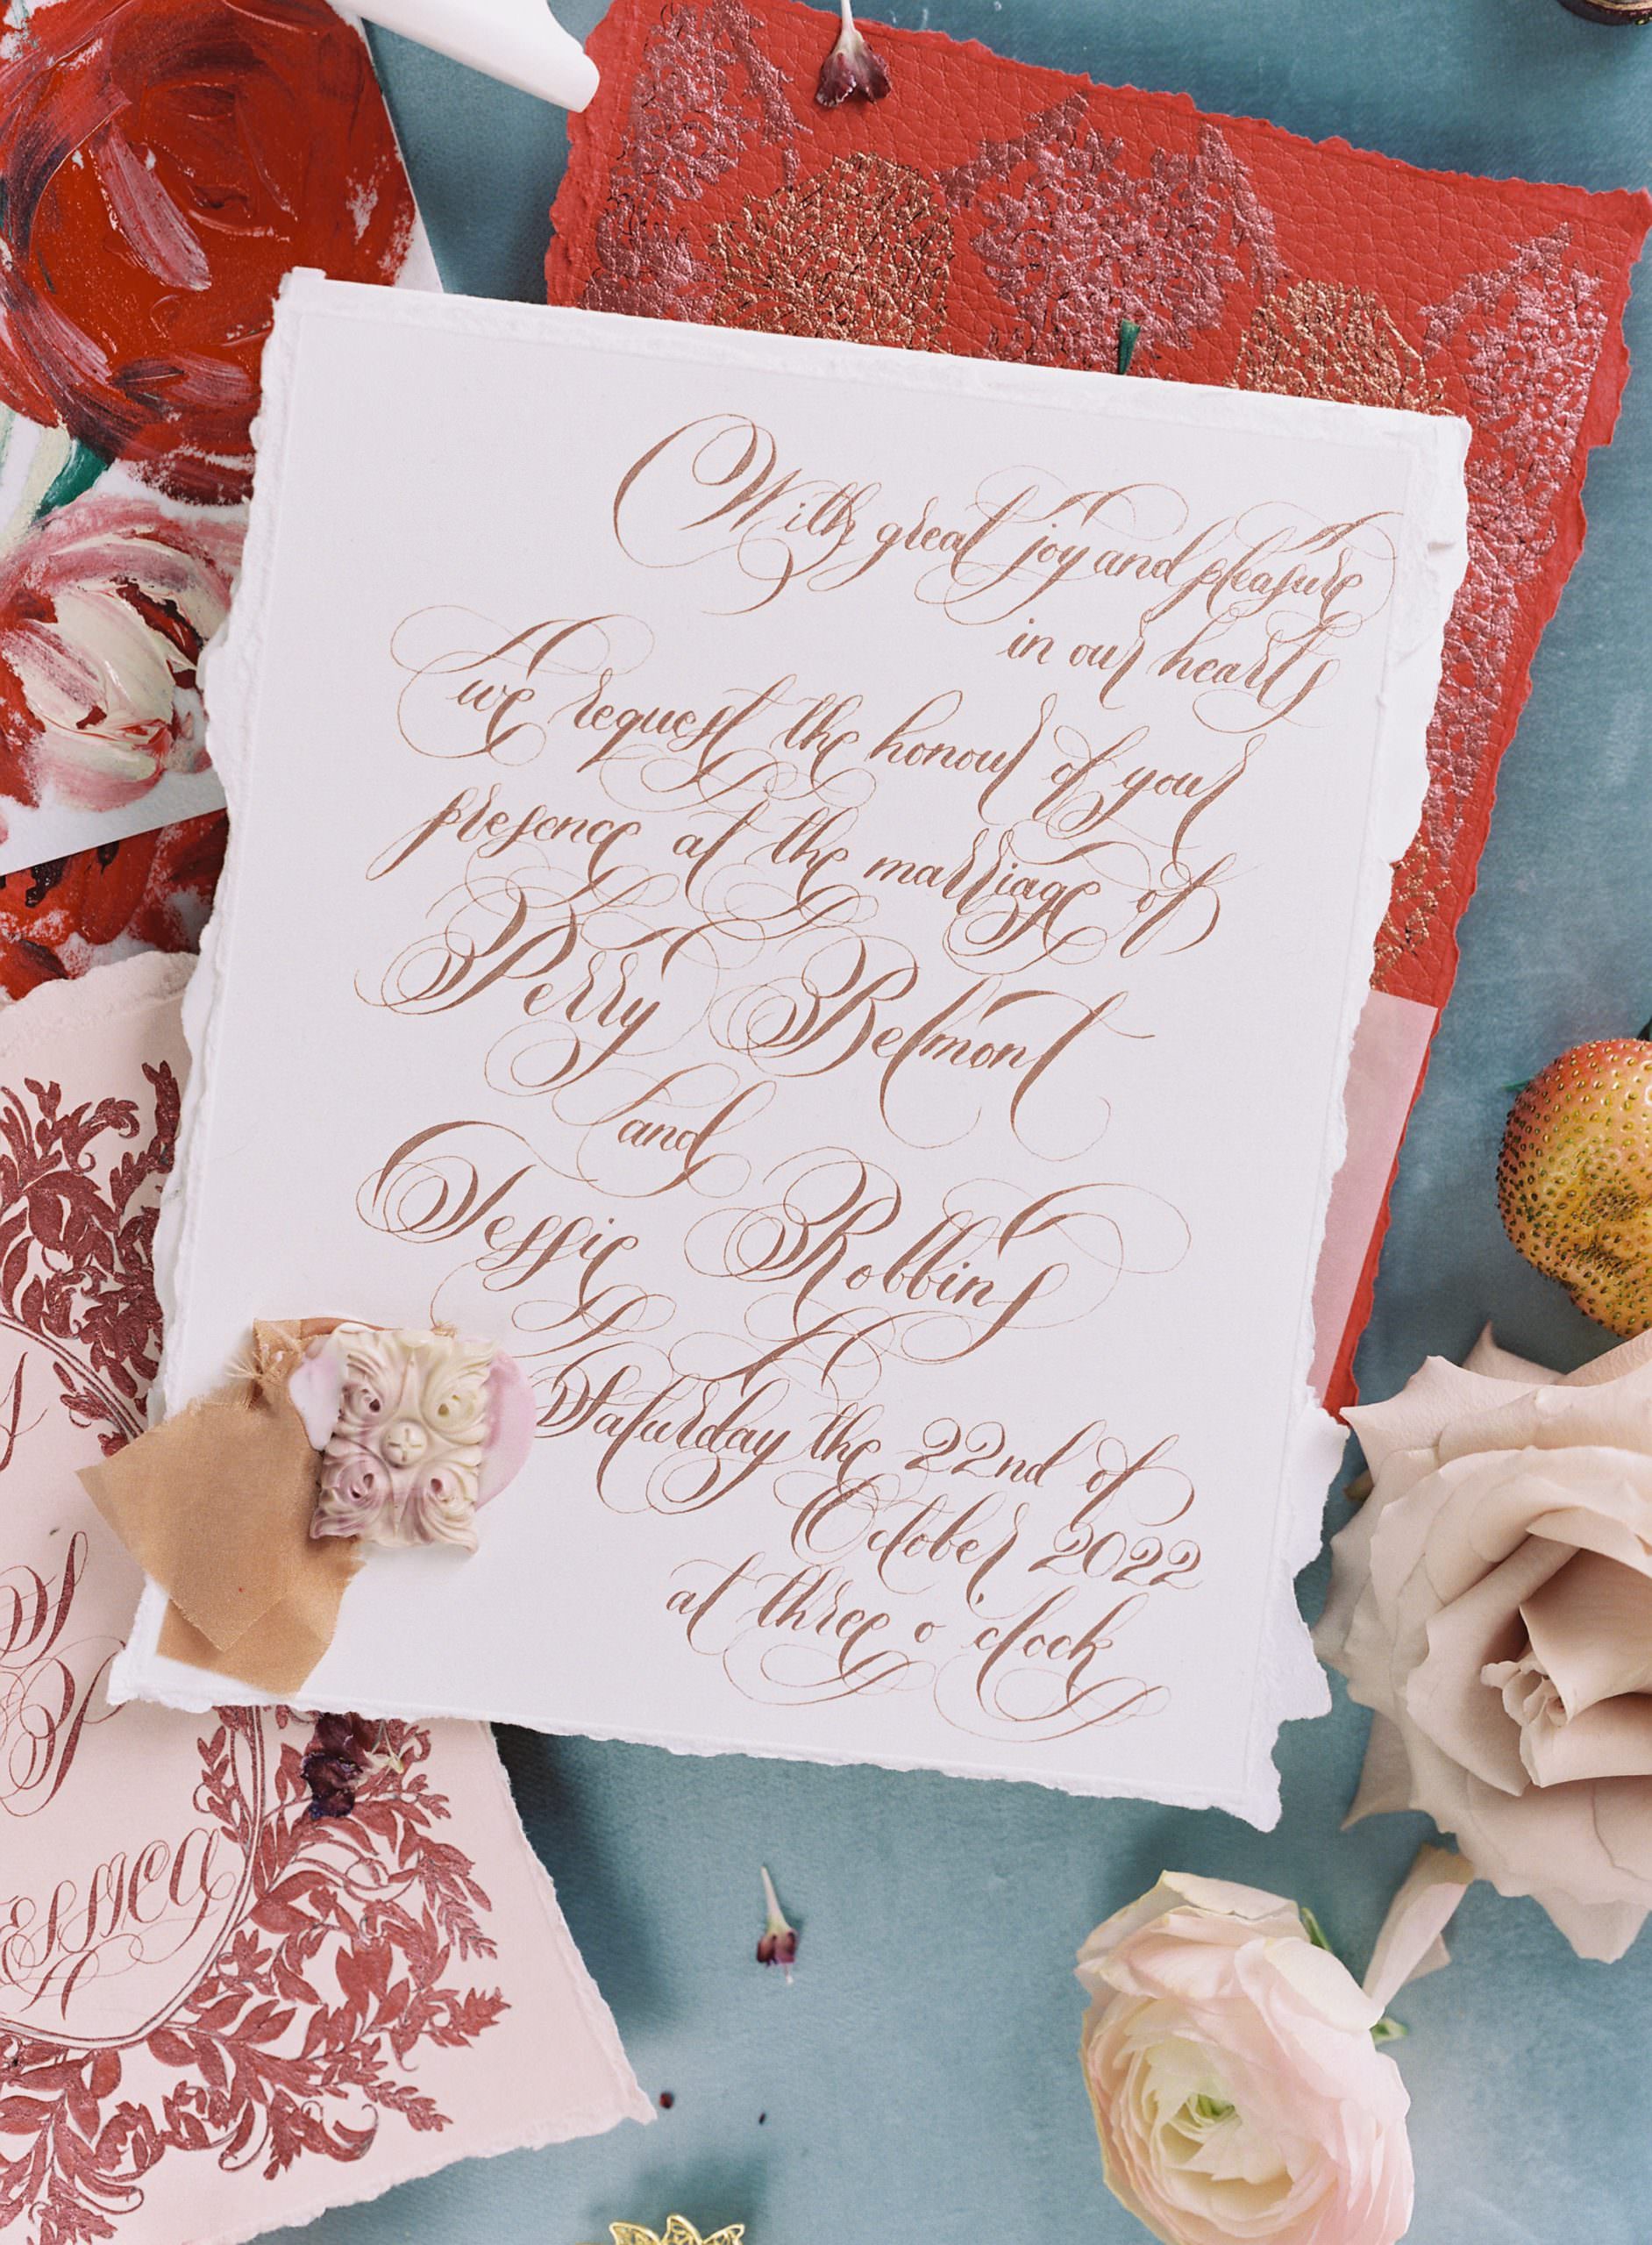 With great joy and pleasure
in our hearts
we request the honour of your
presence at the marriage of
Perry Belmont
and
Jessie Robbins
Saturday the 22nd of
October 2022
at three o'clock